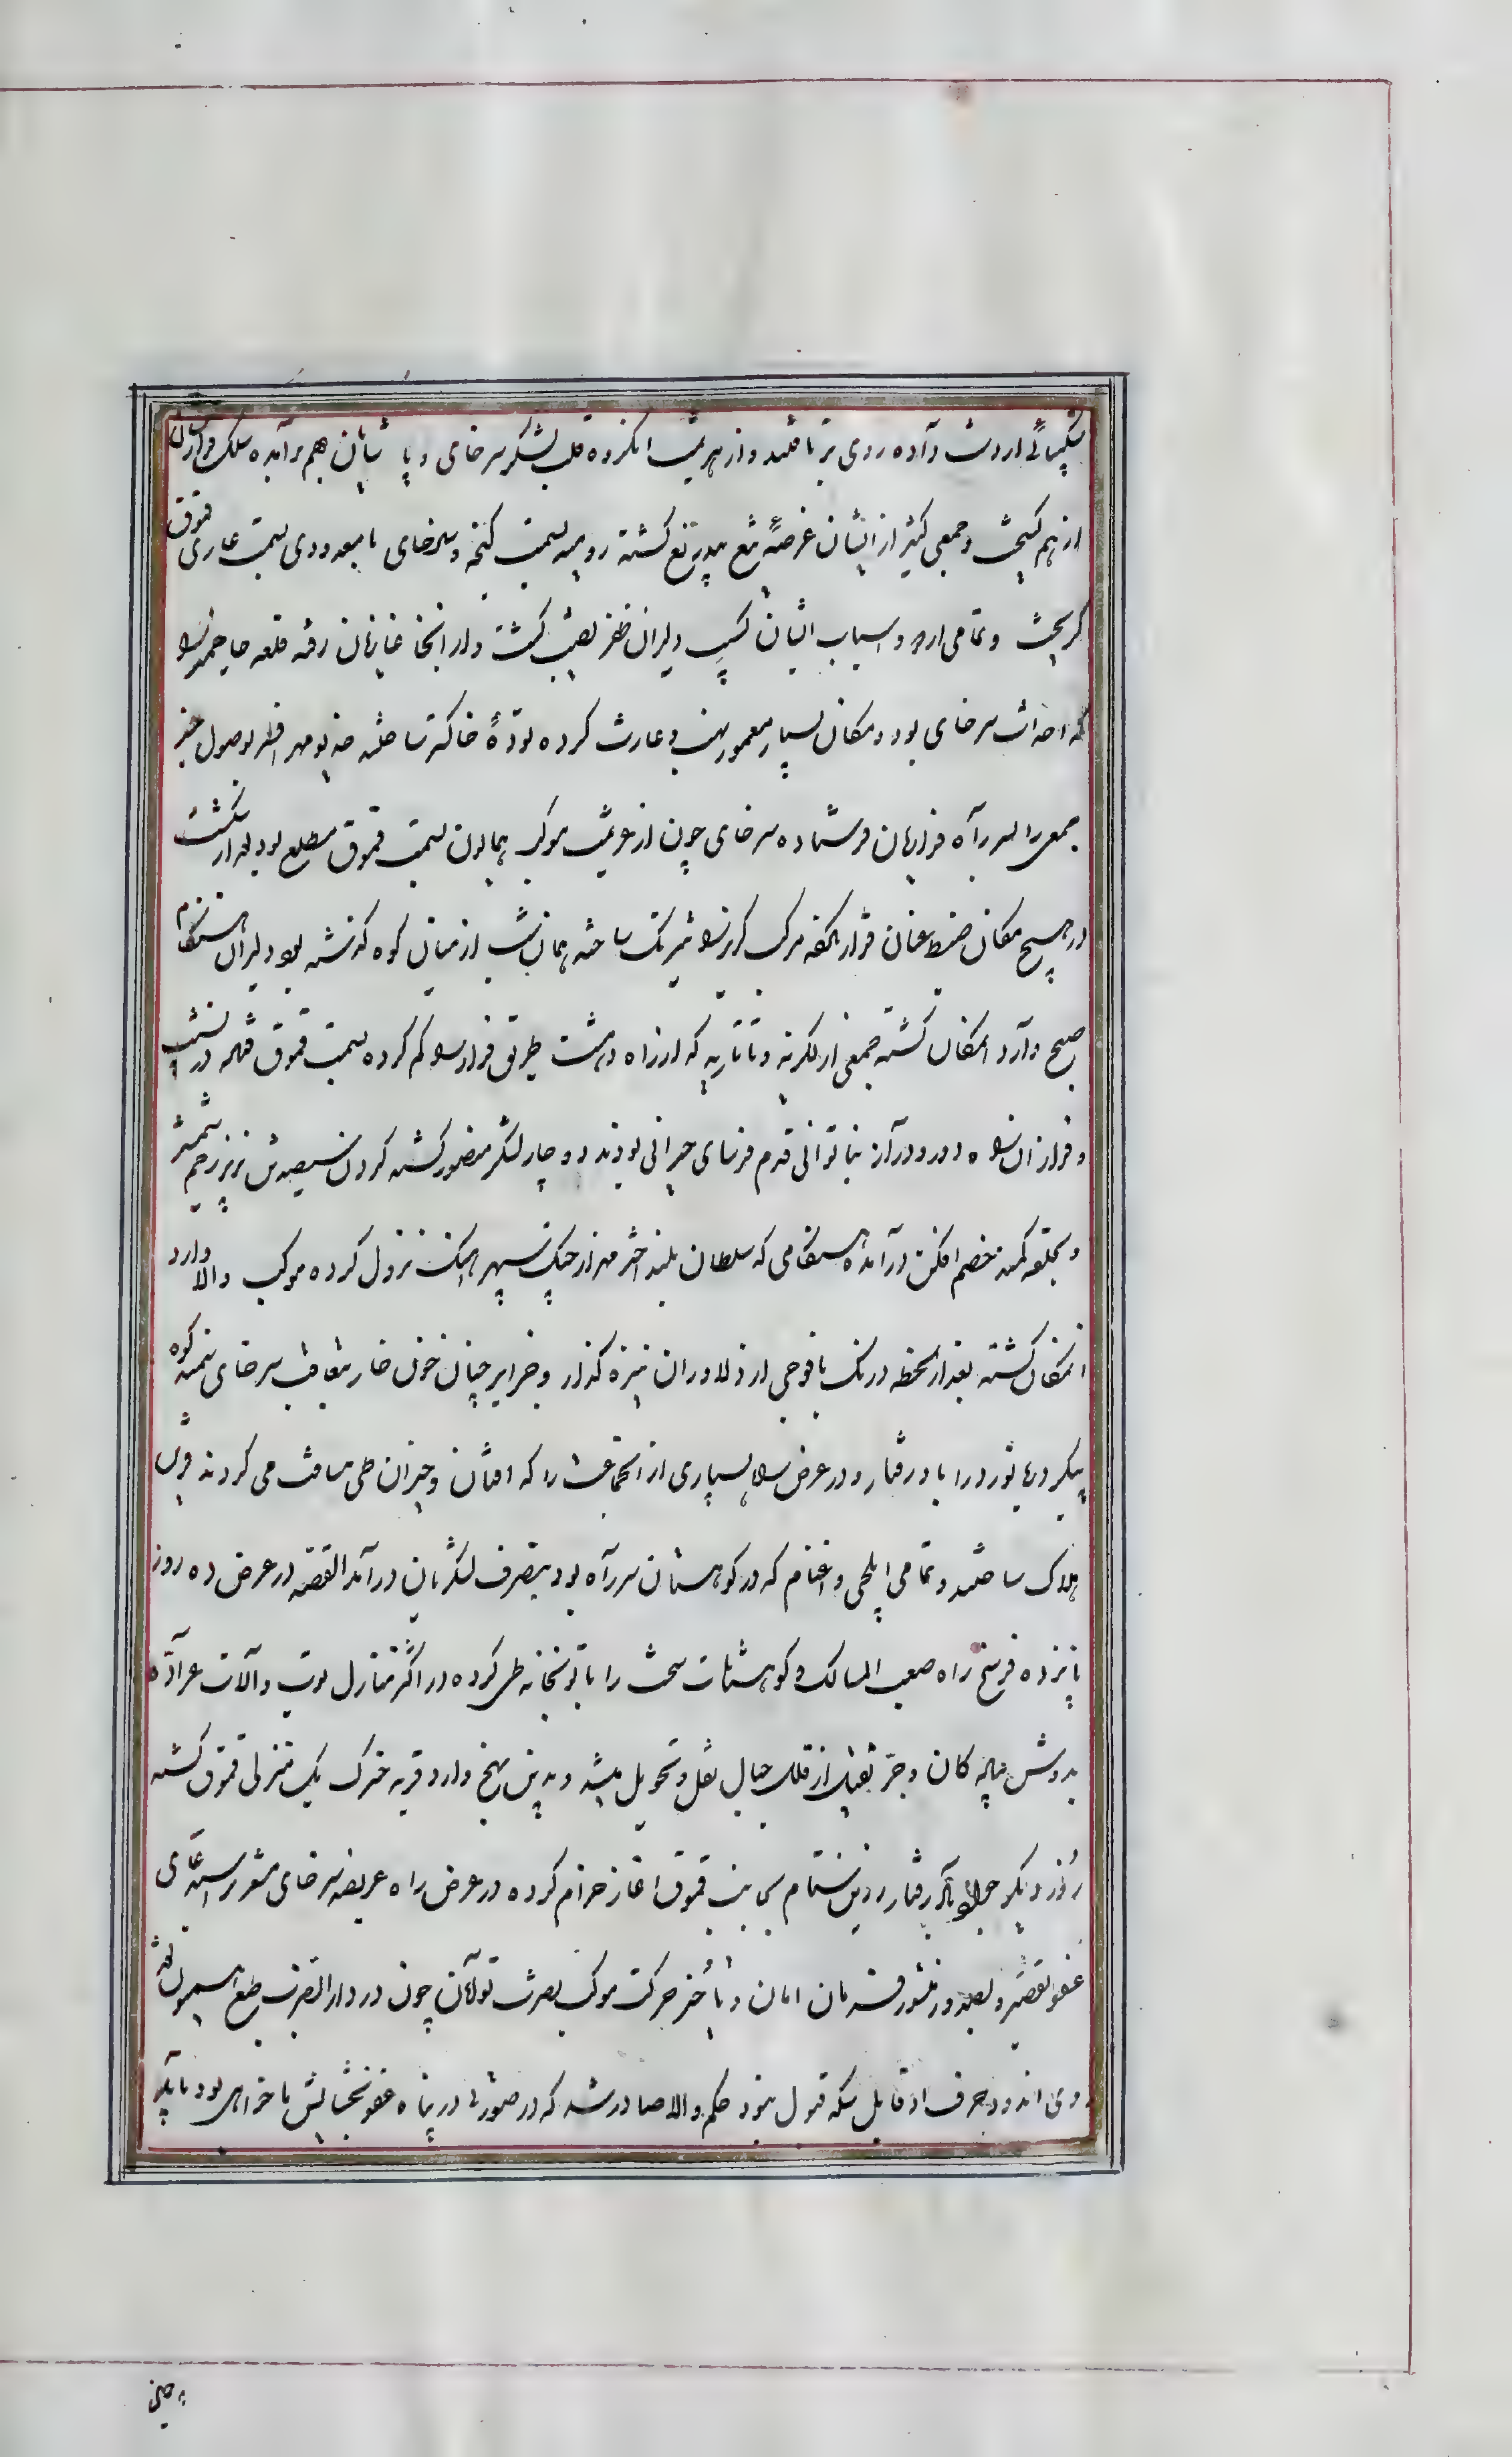 شکیبائی از دست داده روی برتافتند و از هزیمت انکروه قلب لشکر سرخای و پاشایان بهم برآمده سلک قرارشان
از هم کسیخت و جمعی کثیر از ایشان عرضهٔ تیغ بیدریغ کشته رومیه بسمت کنجه و سرخای با معدودی بسمت غازی قموق
کریخت و تمامی اردو و اسباب ایشان کسیب دلیران ظفر نصیب کشت و از انجا غازیان رفته قلعه خاچمز را
که احداث سرخای بود و مکان بسیار معمور نهب و غارت کرده تودهٔ خاکستر ساختند خدیو مهر افسر بوصول خبر
جمعی را بسر راه فراریان فرستاده سرخای چون از عزیمت موکب همایون بسمت قموق مطلع بود
در هیچ مکان ضبط عنان قرار نکرفته مرکب کریز را تیزتک ساخته همان شب از میان کوه کذشته بود دلیران هنکام
صبح وارد انمکان کشته جمعی از لکزیه و تاتاریه که از راه دهشت طریق فرار را کم کرده بسمت قموق رفته در نشیب
و فراز آن راه دور و دراز بناتوانی قدم فرسای حیرانی بودند دوچار لشکر منصور کشته کردن سیصدتن بزیر زخم شمشیر
و بحلقه کمند خصم افکن درآمد هنکامی که سلطان بلند اختر مهر از خنک سپهر اهنک نزول کرده موکب والا وارد
انمکان کشته بعد از لحظه درنک با فوجی از دلاوران نیزه کذار و جزایرچیان خون خار بتعاقب سرخای سمند کوه
پیکر دریا نورد را باد رفتار و در عرض راه بسیاری از انجماعت را که افتان و خیزان طی مسافت می کردند قرین
هلاک ساختند و تمامی ایلخی و اغنام که در کوهستان سر راه بود بتصرف لشکریان درآمد القصه در عرض ده روز
پانزده فرسخ راه صعب المسالک و کوهستان سخت را با توپخانه طی کرده در اکثر منازل توپ و آلات عراده
بدوش پیاده کان و جر ثقیل از قلل جبال نقل و تحویل میشد و بدین نهج وارد قریه خسرک یک منزلی قموق کشته
روز دیکر رفتار زرین ستام بجانب قموق اغاز خرام کرده در عرض راه عریضه سرخای مشعر بر استدعای
عفو تقصیر و بصدور منشور فرمان امان و تاخیر حرکت موکب نصرت توامان چون در دار الضرب طبع همیون نقد
روی اندود حرف او قابل سکه قبول نبود حکم والا صادر شد که در صورتی در پناه عفو و بخشایش ما خواهی بود که
به جنی